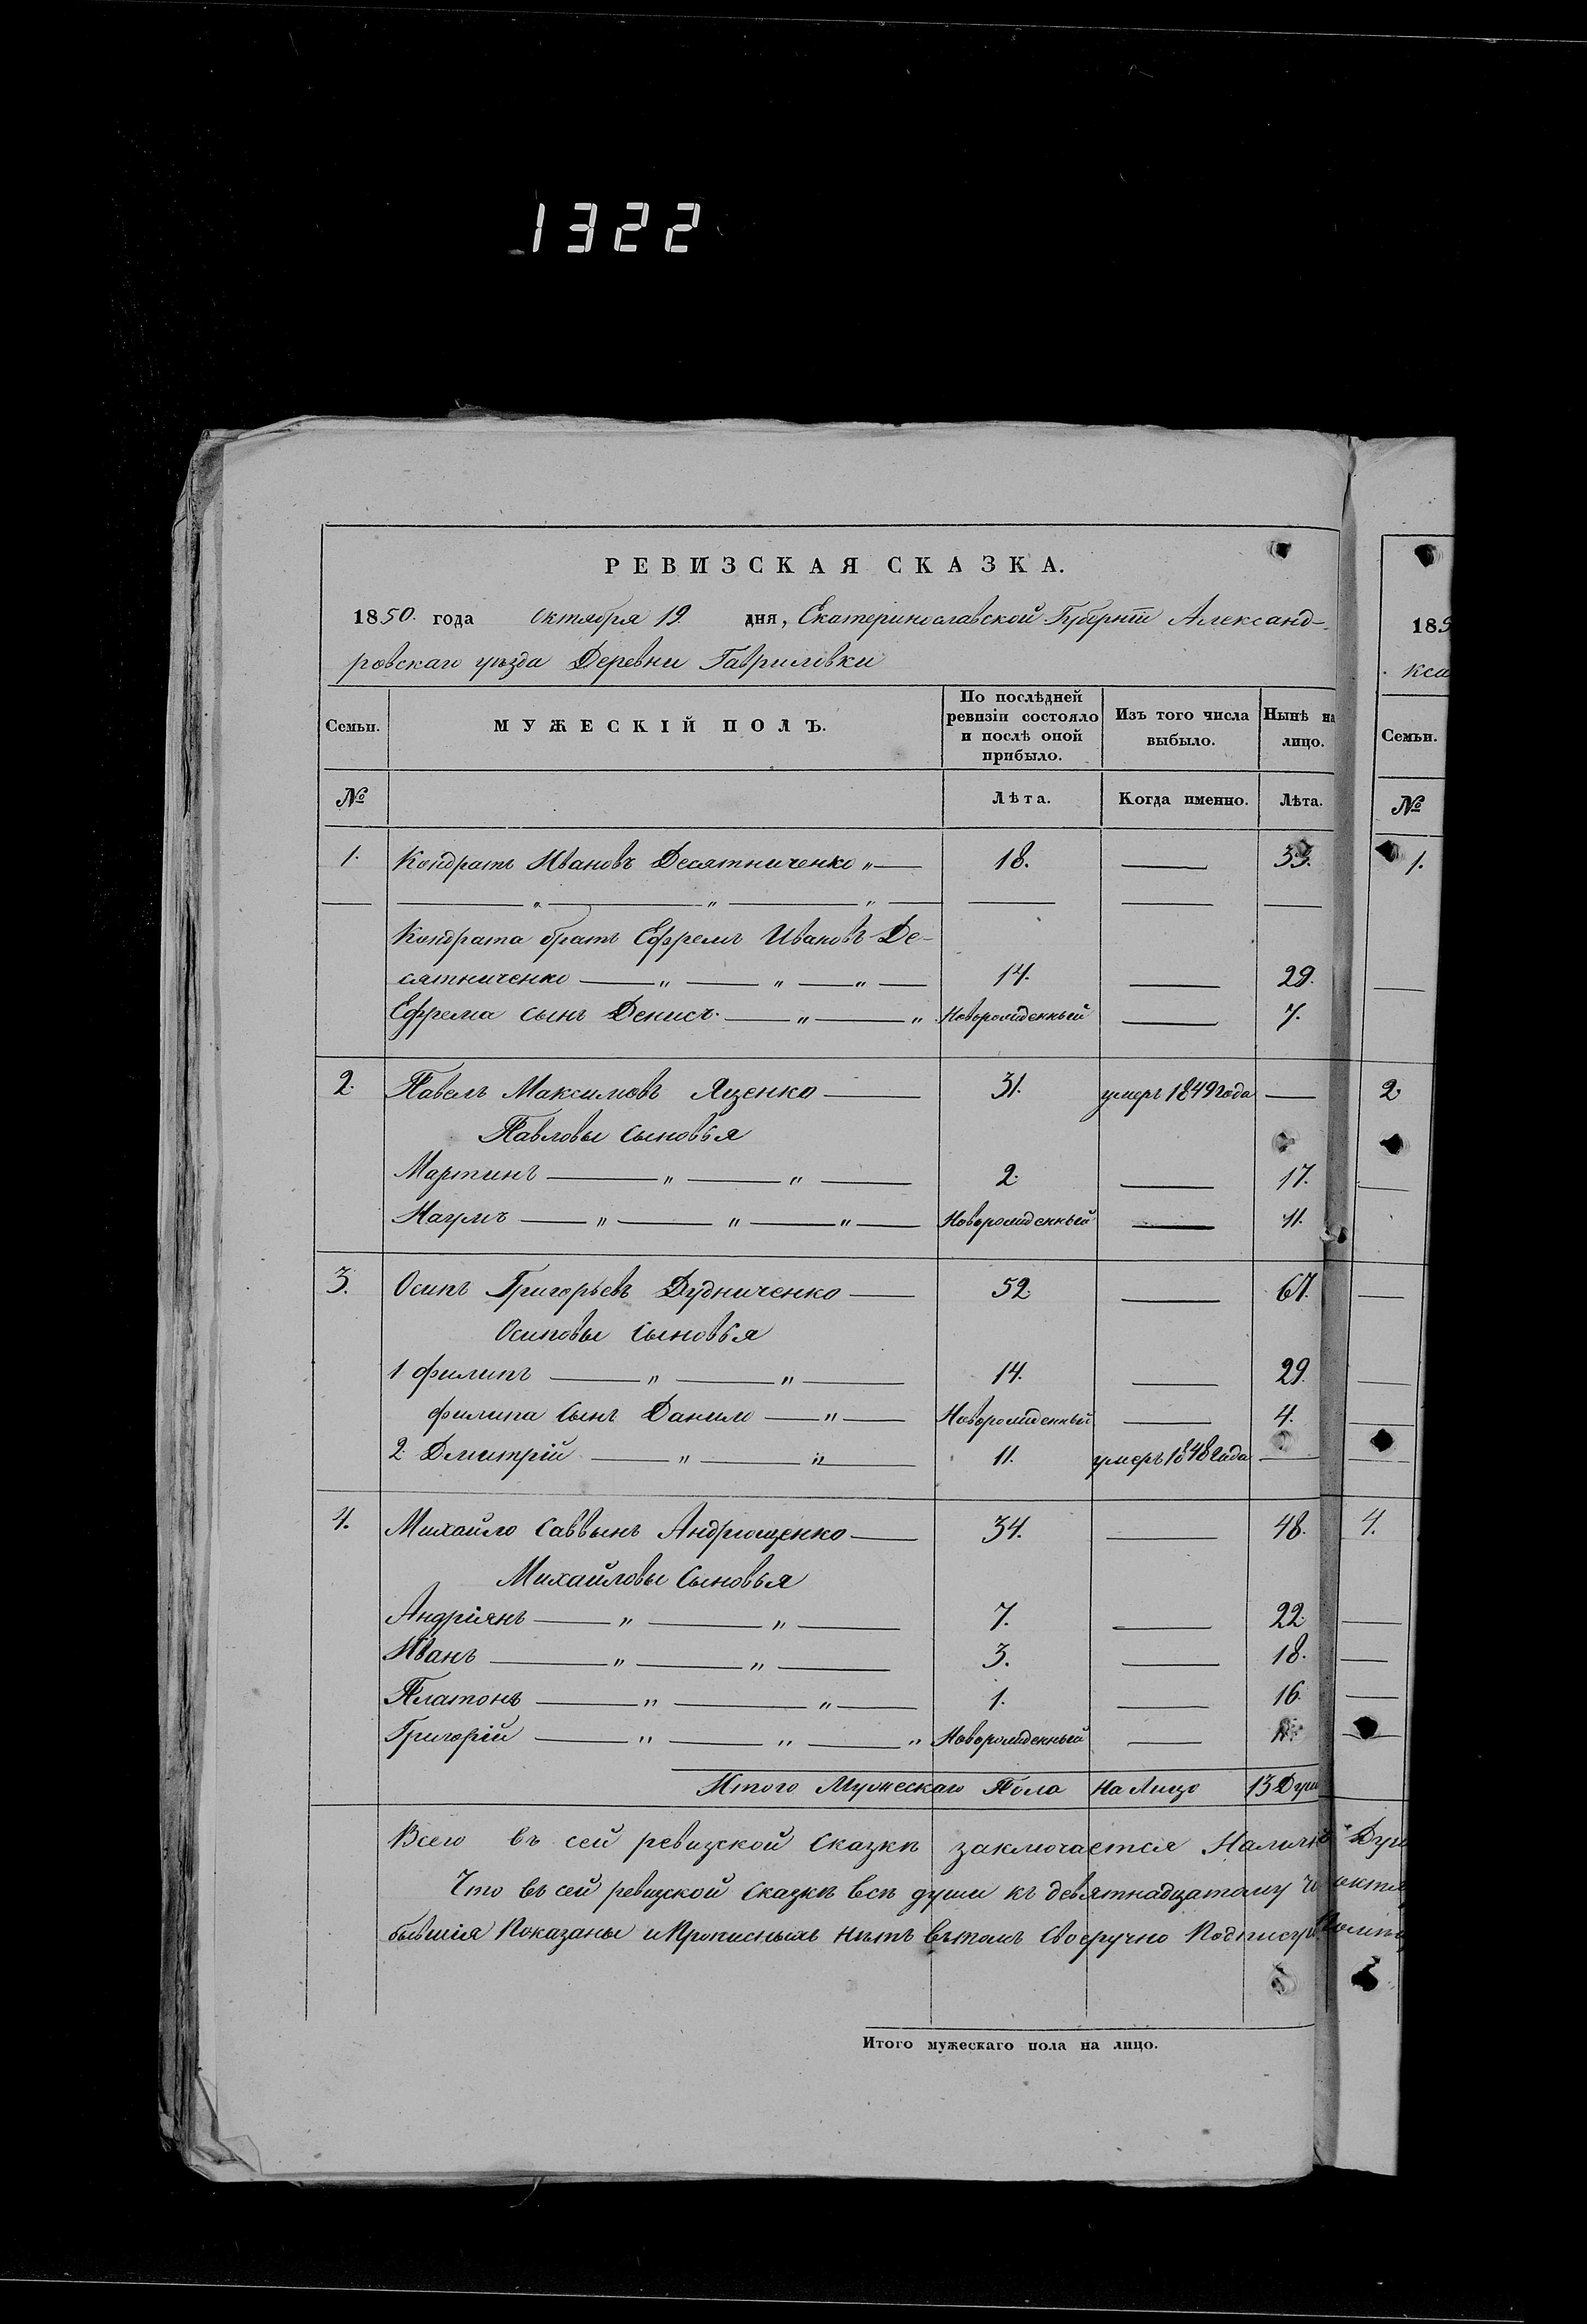 1322
РЕВИЗСКАЯ СКАЗКА.
1850. года октября 19 дня, Екатеринославской Губерніи Александ-
ровскаго уѣзда Деревни Гавриловки
Семьи. МУЖЕСКІЙ ПОЛЪ. По послѣдней ревизіи состояло и послѣ оной прибыло. Изъ того числа выбыло. Нынѣ на лицо.
№ Лѣта. Когда именно. Лѣта.
1. Кондратъ Ивановъ Десятниченко „ — 18. — 33.
— „ — „ — „ —
Кондрата братъ Ефремъ Ивановъ Де-
сятниченко — „ — „ — „ — 14. — 29.
Ефрема сынъ Денисъ. — „ — „ Новорожденный — 7.
2. Павелъ Максимовъ Яценко — 31. умеръ 1849 года —
Павловы сыновья
Мартинъ — „ — „ — 2. — 17.
Наумъ — „ — „ — „ — Новорожденный — 11.
3. Осипъ Григорьевъ Дудниченко — 52 — 67.
Осиповы сыновья
1 филипъ — „ — „ — 14. — 29.
филипа сынъ Данило — „ — Новорожденный — 4.
2. Дмитрій — „ — „ — 11. умеръ 1848 года —
4. Михайло Саввинъ Андрющенко — 34. — 48.
Михайловы сыновья
Андріянъ — „ — „ — 7. — 22.
Иванъ — „ — „ — 3. — 18.
Платонъ — „ — „ — 1. — 16.
Григорій — „ — „ — „ Новорожденный —
Итого Мужескаго Пола На Лицо 13 Душ
Всего въ сей ревизской Сказкѣ заключается
Что въ сей ревизской Сказкѣ всѣ души къ девятнадцатому
бывшія Показаны и Прописныхъ нѣтъ въ томъ Своеручно
Итого мужескаго пола на лицо.
185
кса
Семьи.
№
1.
2.
4.